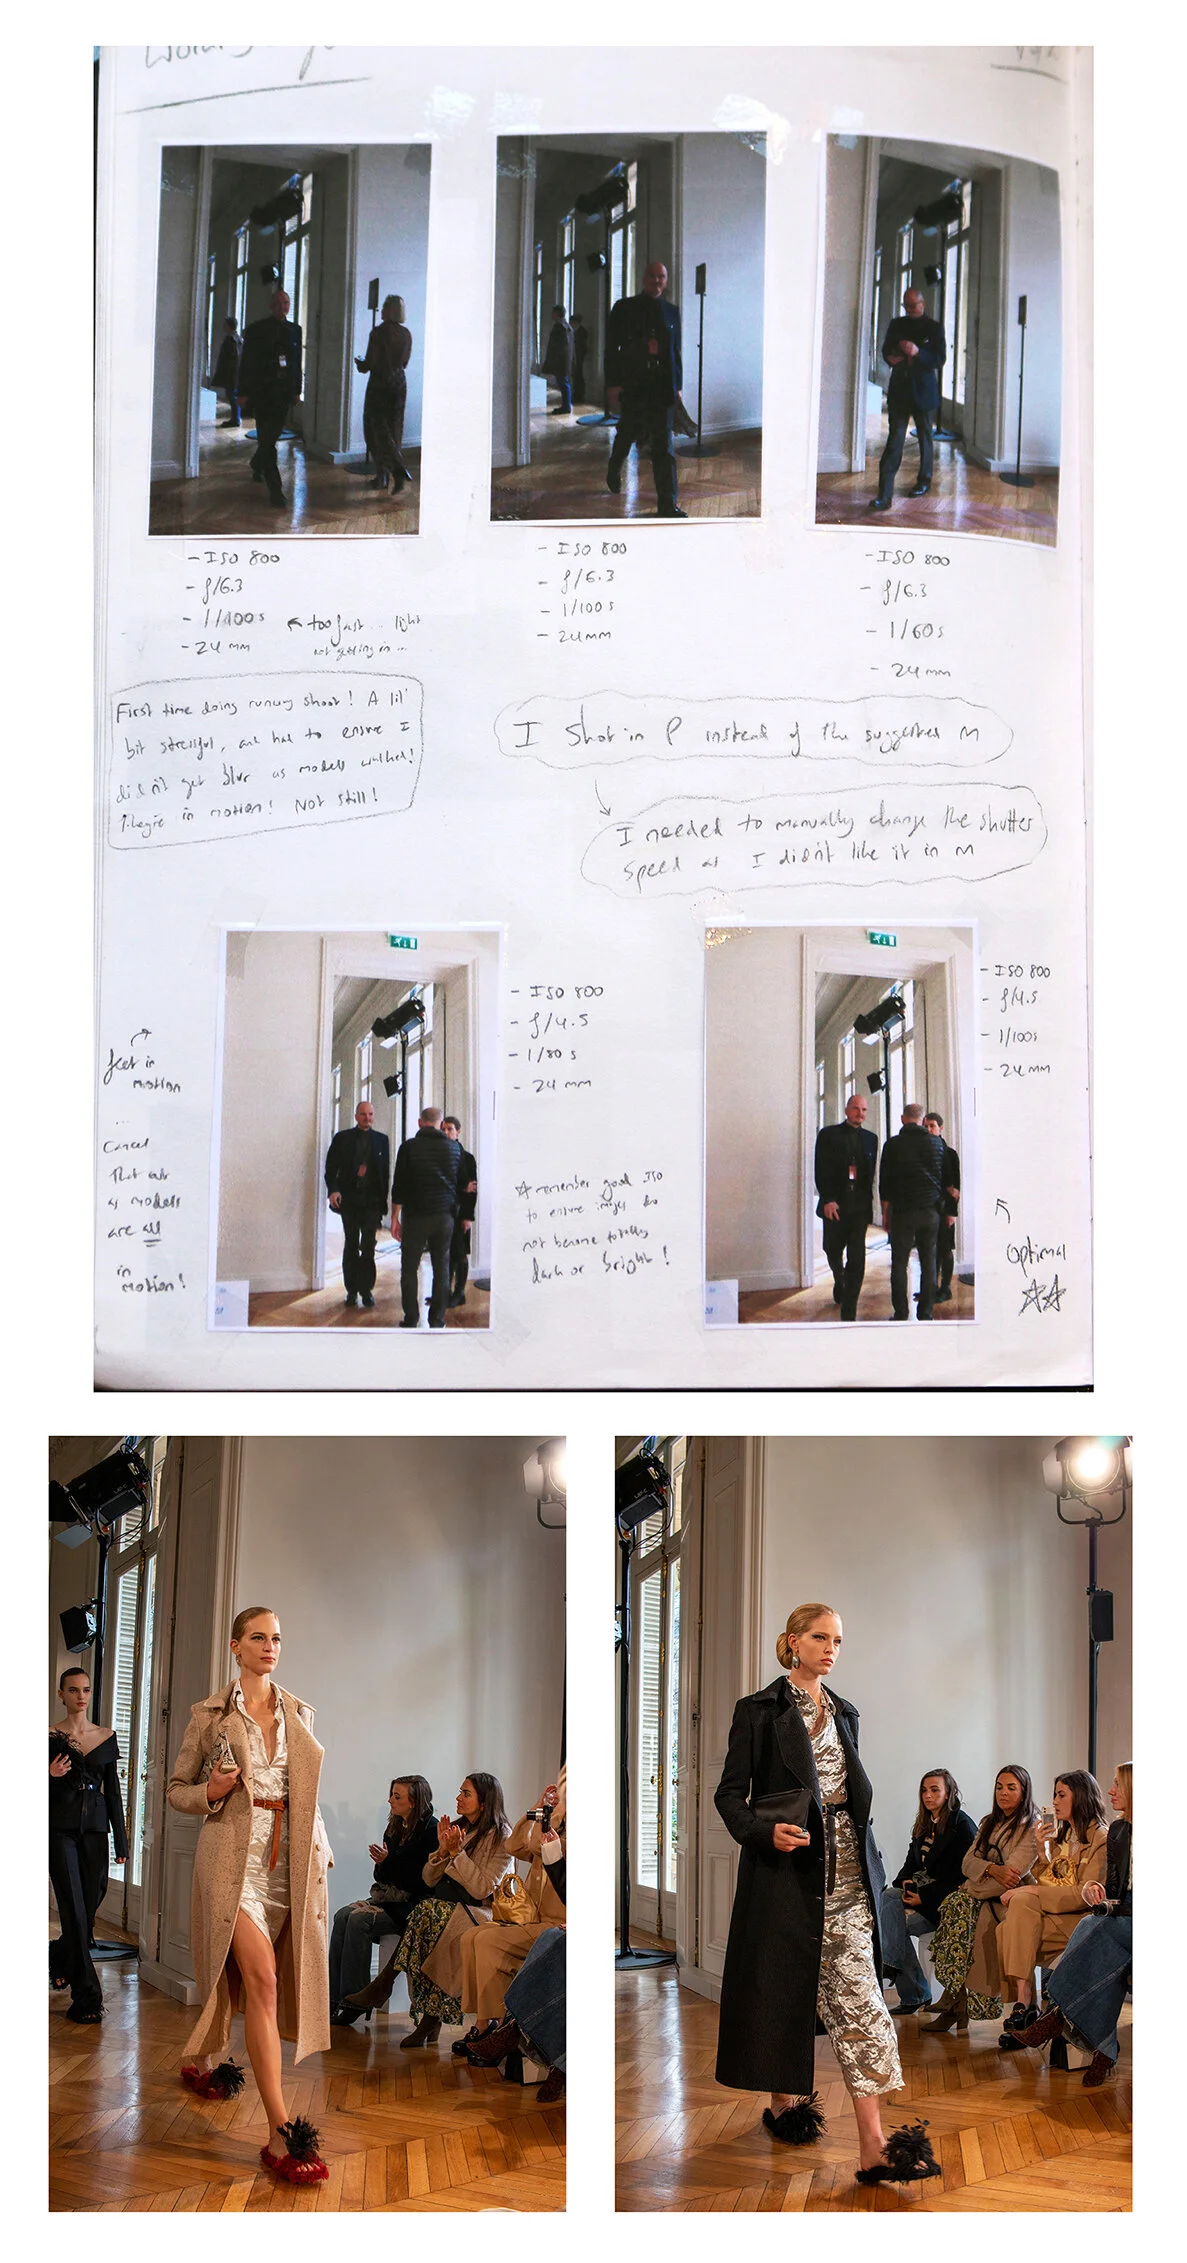 - ISO 800
- f/6.3
- 1/100s
- 24mm
↖ too fast... light
not getting in...
- ISO 800
- f/6.3
- 1/100s
- 24mm
- ISO 800
- f/6.3
- 1/60s
- 24mm
First time doing runway shoot! A lil'
bit stressful, and had to ensure I
didn't get blur as models walked!
They're in motion! Not still!
I shot in P instead of the suggested M
I needed to manually change the shutter
speed as I didn't like it in M
feet in
motion
...
Cancel
that out
as models
are all
in
motion!
- ISO 800
- f/4.5
- 1/80s
- 24mm
☆ remember good ISO
to ensure images do
not become totally
dark or bright!
- ISO 800
- f/4.5
- 1/100s
- 24mm
optimal
☆☆